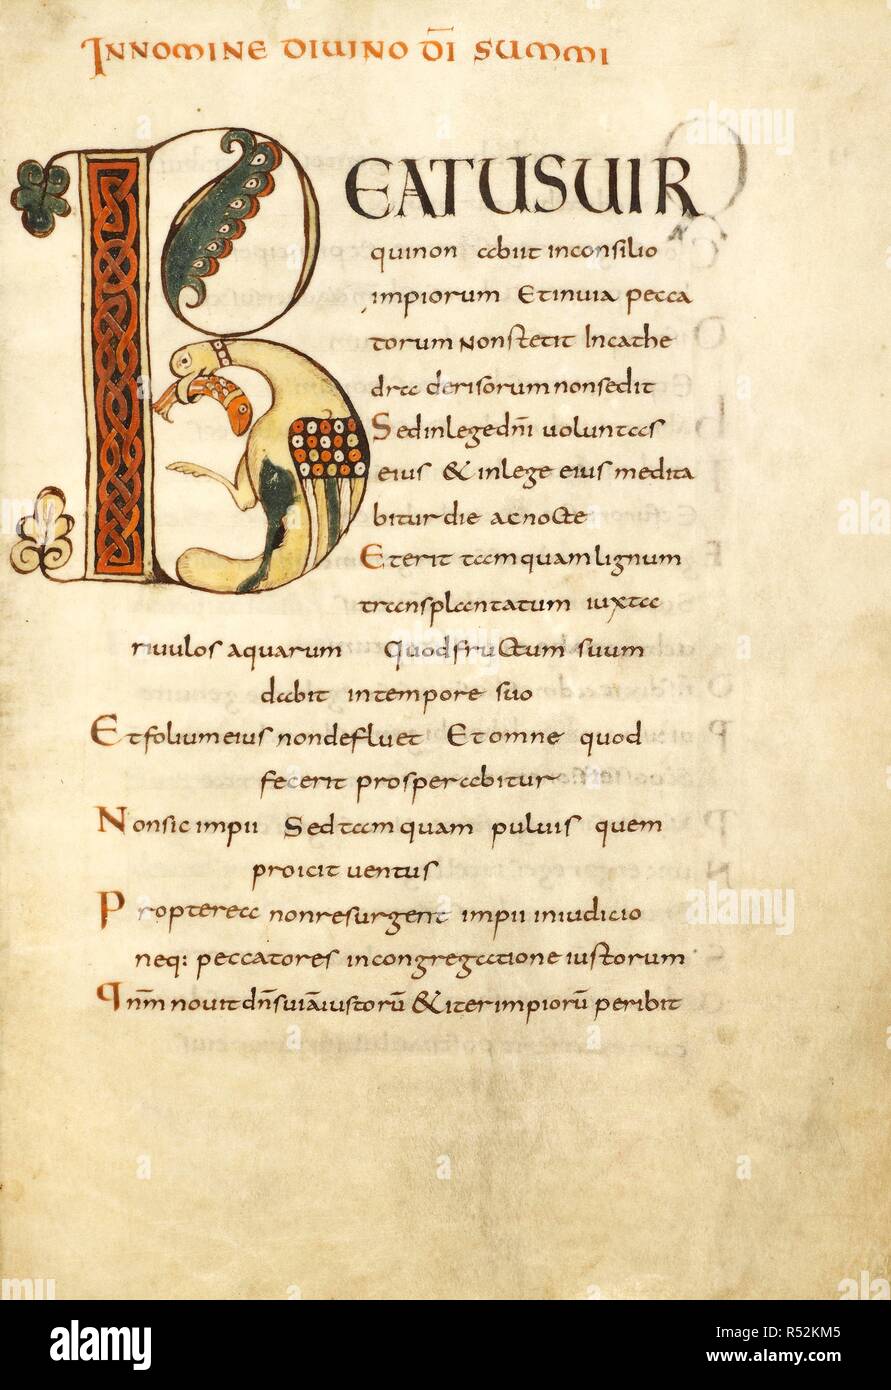 INNOMINE DIUINO DI SUMMI
BEATUSUIR
quinon abiit inconsilio
impiorum Etinuia pecca
torum Nonstetit Incathe
dra derisorum nonsedit
Sedinlegedni uoluntas
eius & inlege eius medita
bitur die acnocte
Eterit tamquam lignum
transplantatum iuxta
riuulos aquarum Quodfructum suum
dabit intempore suo
Etfolium eius nondefluet Etomne quod
fecerit prosperabitur
Nonsic impii Sedtamquam puluis quem
proicit uentus
Propterea nonresurgent impii iniudicio
neq: peccatores incongregatione iustorum
Qnm nouit dns uia iustorū & iter impiorū peribit
alamy
Image ID: R52KM5
www.alamy.com